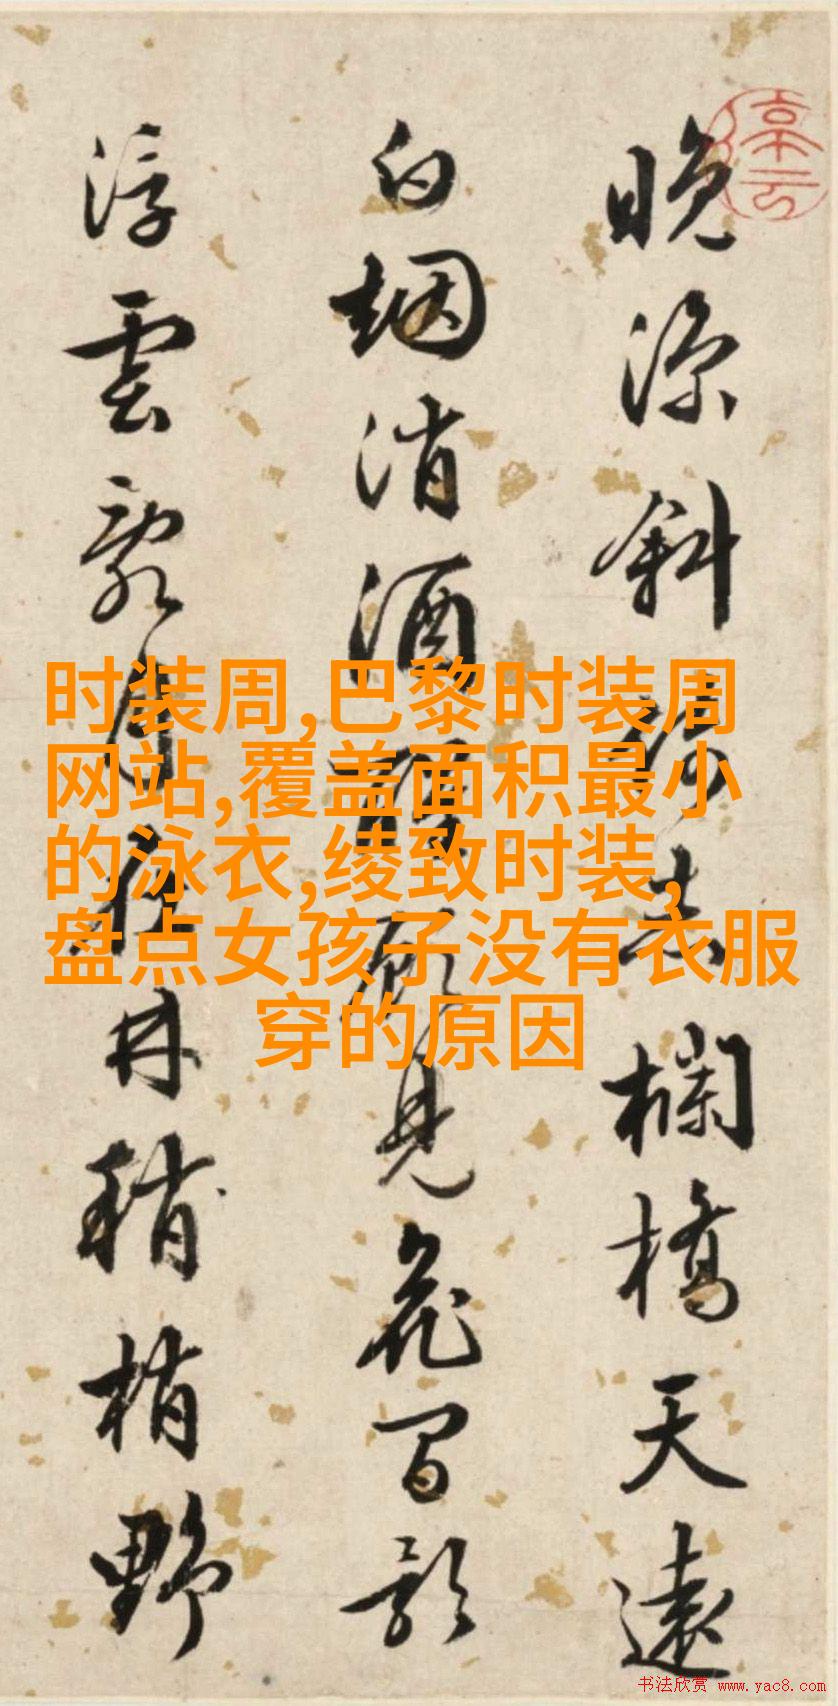 时装周,巴黎时装周
网站,覆盖面积最小
的泳衣,绫致时装,
盘点女孩子没有衣服
穿的原因
晚涼斜赤欄橋天遠
白烟消酒醒見花間影
浮雲月稍梢野
书法欣赏 www.yac8.com